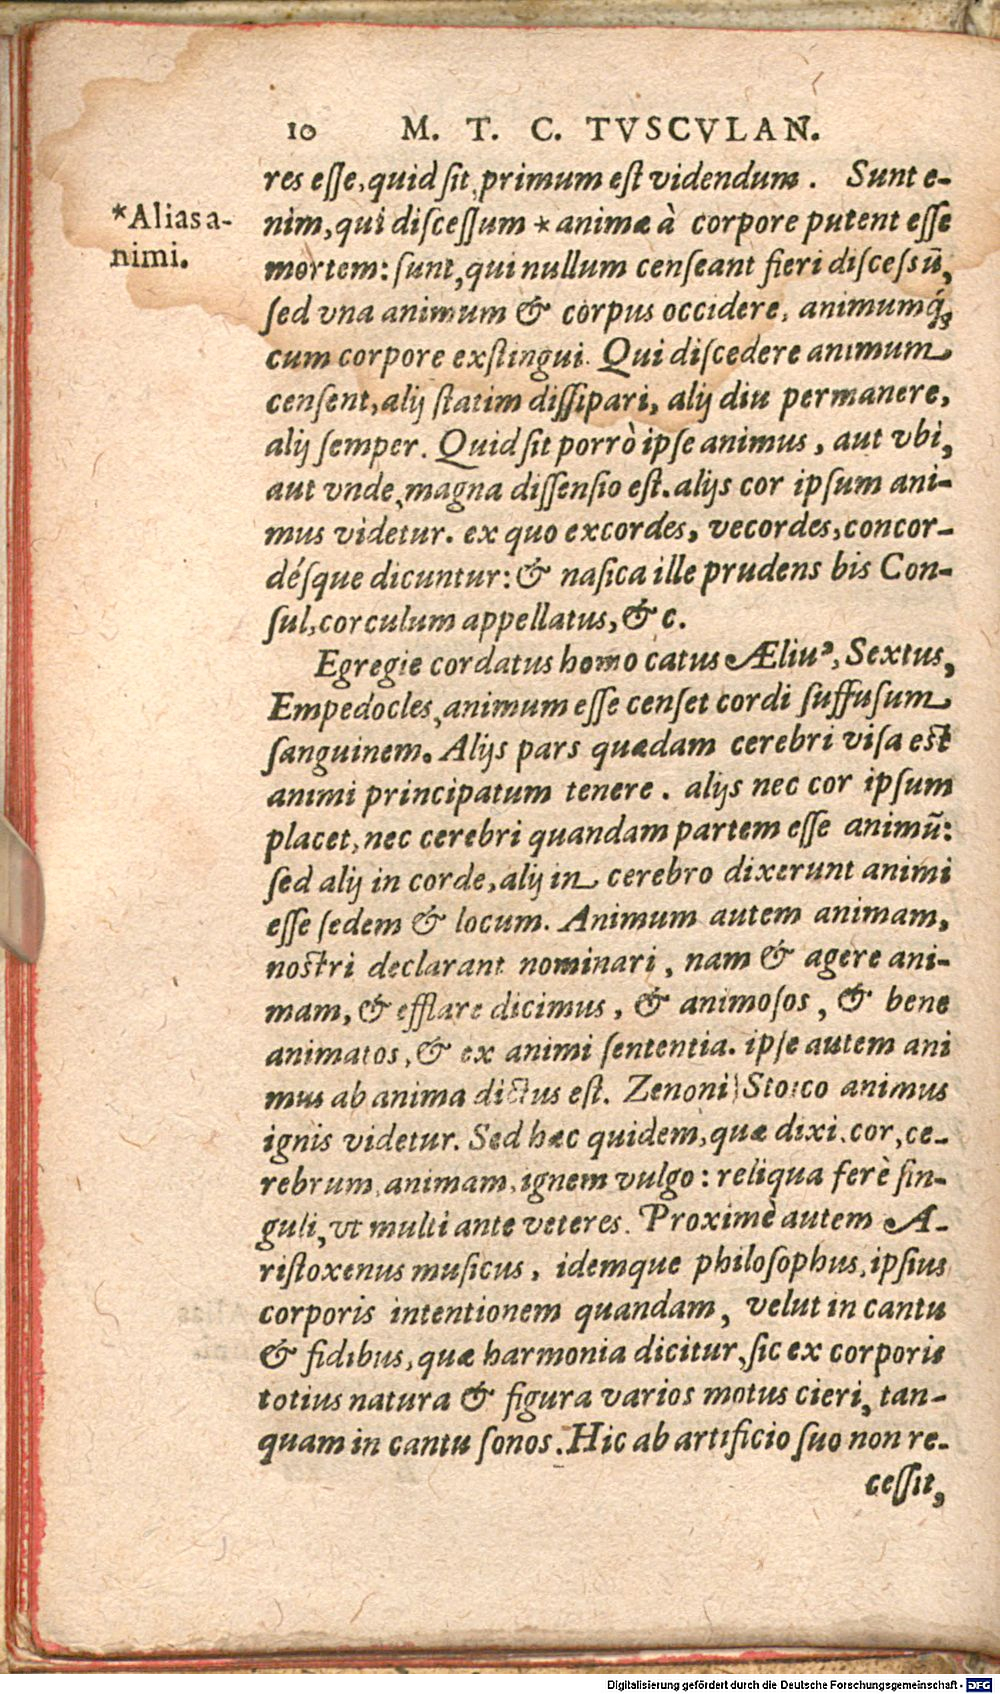 10 M. T. C. TVSCVLAN.
res esse, quid sit, primum est videndum. Sunt e-
*Alias a-
nimi.
nim, qui discessum * animæ à corpore putent esse
mortem: sunt, qui nullum censeant fieri discessū,
sed vna animum & corpus occidere, animumq́;
cum corpore exstingui. Qui discedere animum
censent, alij statim dissipari, alij diu permanere,
alij semper. Quid sit porrò ipse animus, aut vbi,
aut vnde, magna dissensio est. alijs cor ipsum ani-
mus videtur. ex quo excordes, vecordes, concor-
désque dicuntur: & nasica ille prudens bis Con-
sul, corculum appellatus, & c.
Egregie cordatus homo catus Æliuꝰ, Sextus,
Empedocles, animum esse censet cordi suffusum
sanguinem. Alijs pars quædam cerebri visa est
animi principatum tenere. alijs nec cor ipsum
placet, nec cerebri quandam partem esse animū:
sed alij in corde, alij in cerebro dixerunt animi
esse sedem & locum. Animum autem animam,
nostri declarant nominari, nam & agere ani-
mam, & efflare dicimus, & animosos, & bene
animatos, & ex animi sententia. ipse autem ani
mus ab anima dictus est. Zenoni Stoico animus
ignis videtur. Sed hæc quidem, quæ dixi, cor, ce-
rebrum, animam, ignem vulgo: reliqua ferè sin-
guli, vt multi ante veteres. Proximè autem A-
ristoxenus musicus, idemque philosophus, ipsius
corporis intentionem quandam, velut in cantu
& fidibus, quæ harmonia dicitur, sic ex corporis
totius natura & figura varios motus cieri, tan-
quam in cantu sonos. Hic ab artificio suo non re-
cessit,
Digitalisierung gefördert durch die Deutsche Forschungsgemeinschaft - DFG